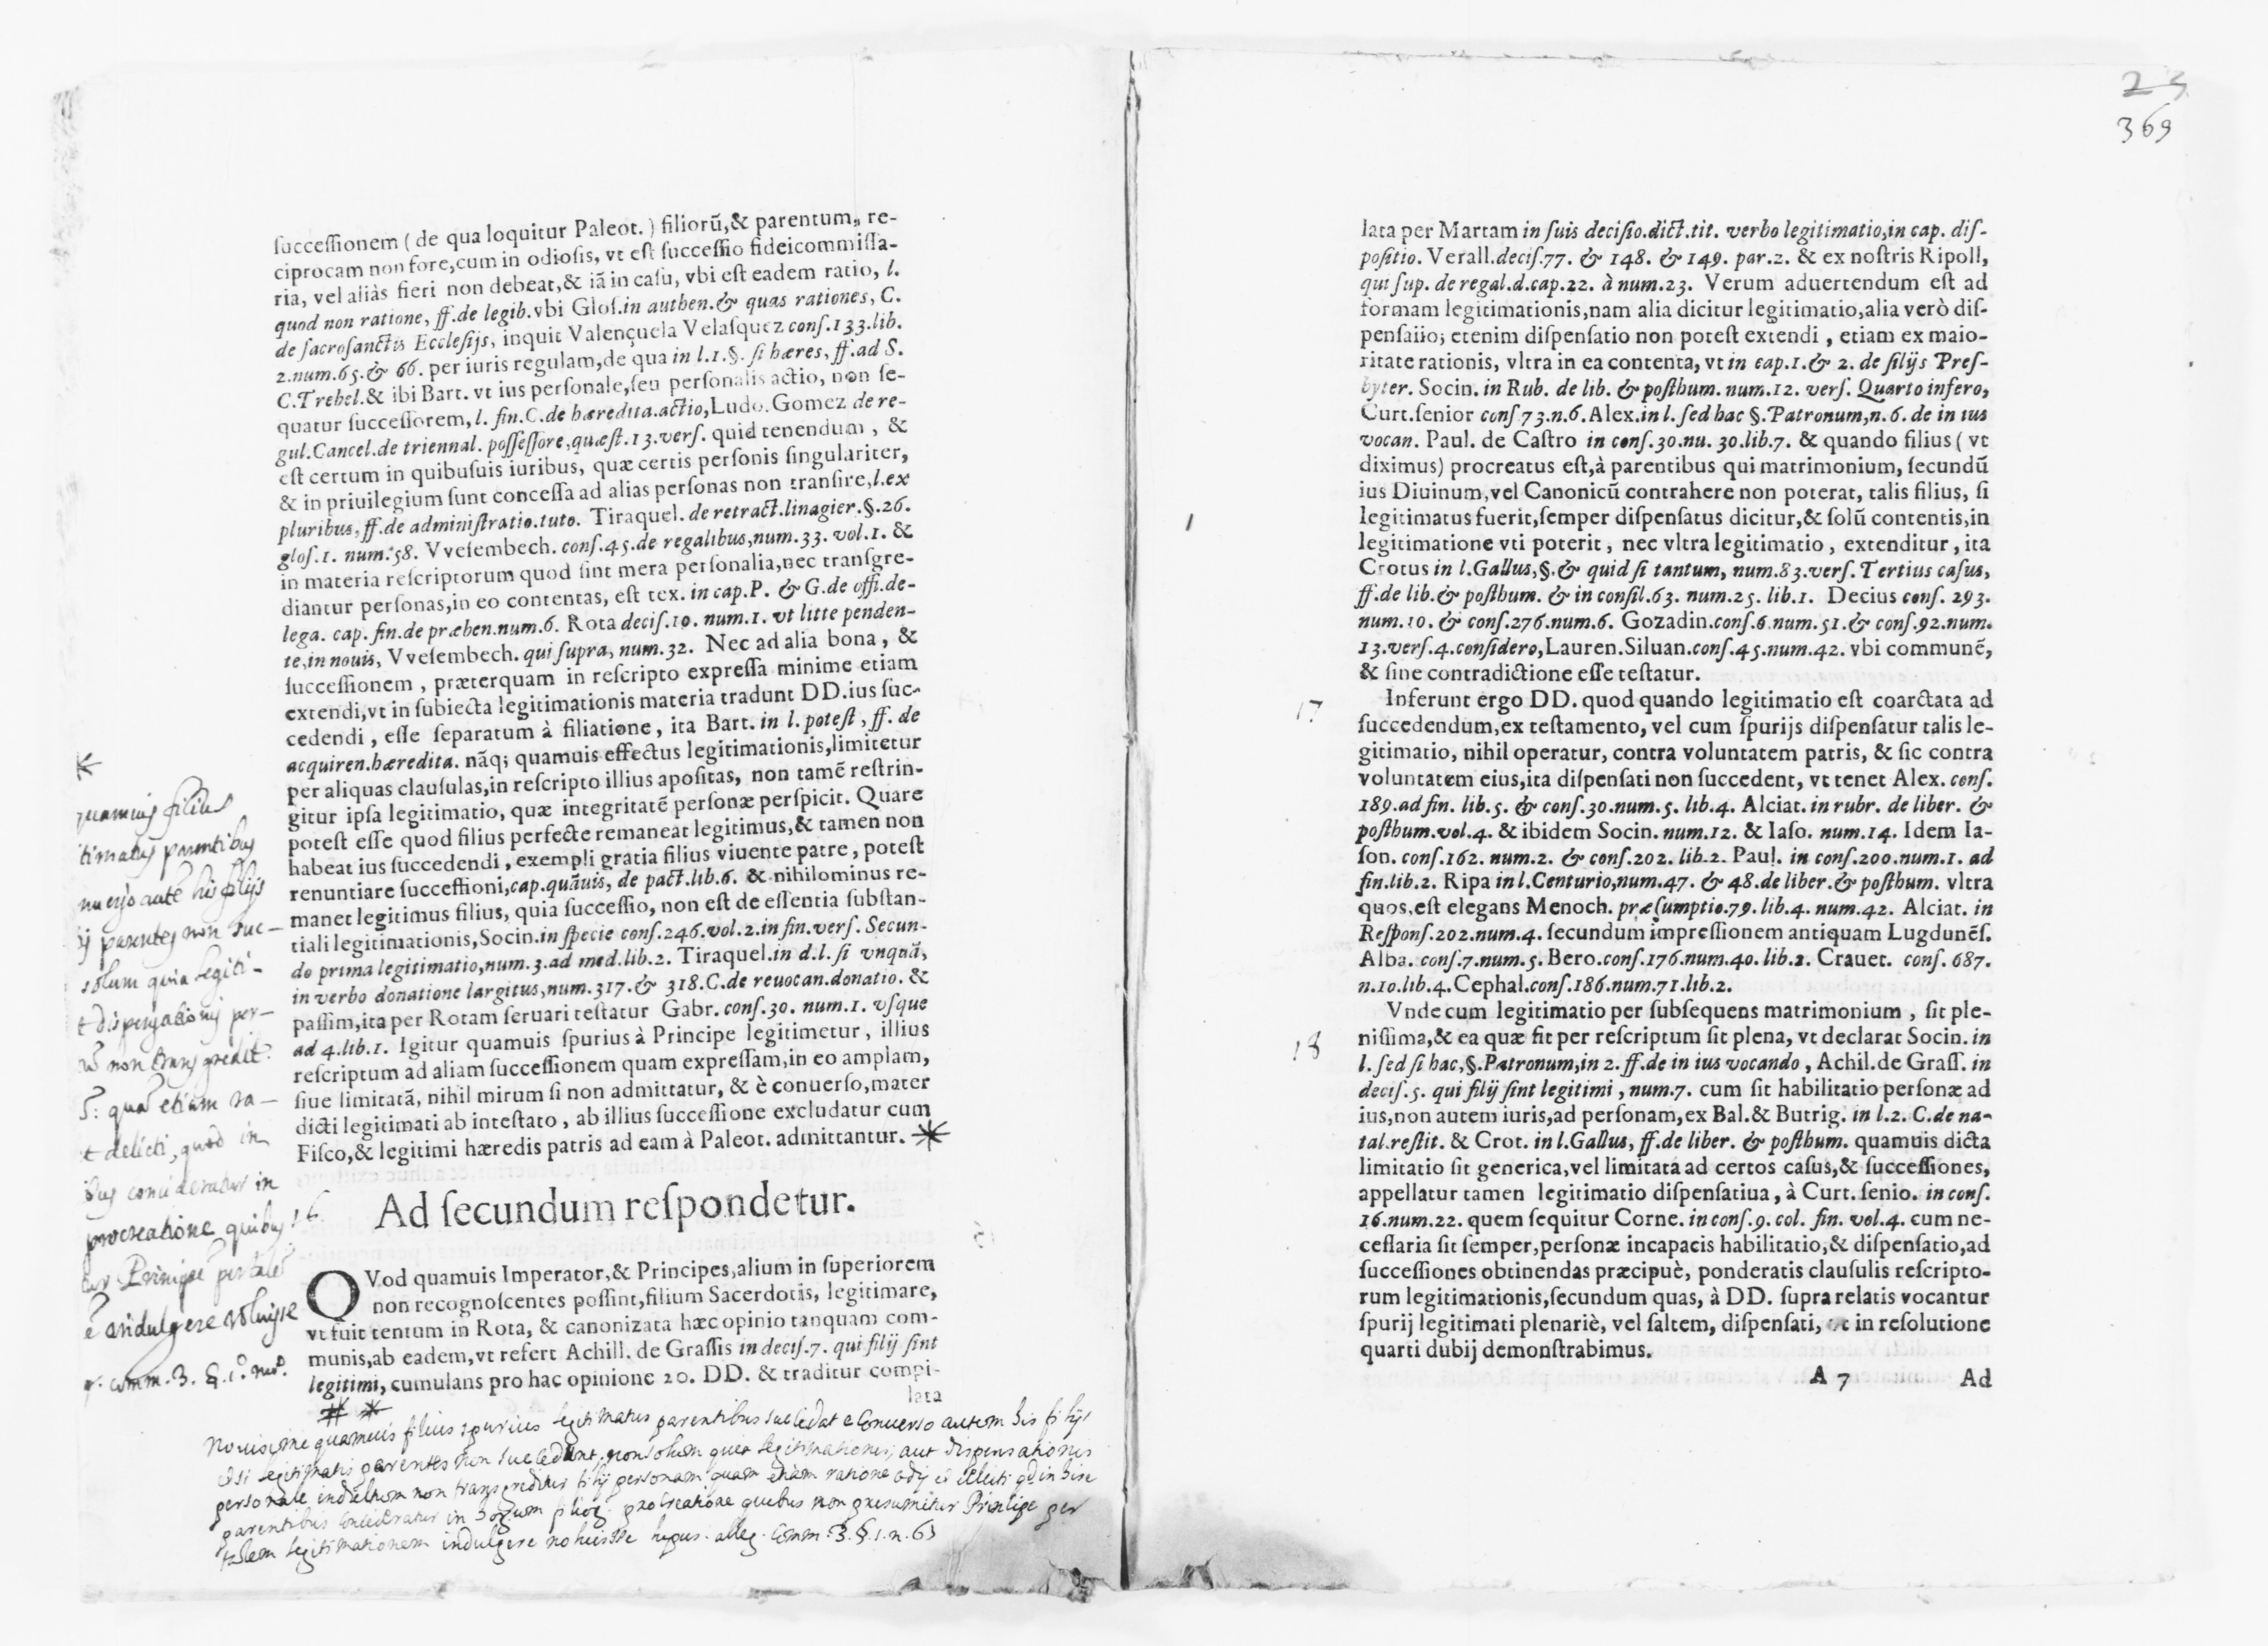 ſucceſſionem ( de qua loquitur Paleot. ) filiorũ,& parentum, re-
ciprocam non fore,cum in odioſis, vt eſt ſucceſſio fideicommiſſa-
ria, vel aliàs fieri non debeat,& iã in caſu, vbi eſt eadem ratio, l.
quod non ratione, ff.de legib.vbi Gloſ.in authen.& quas rationes, C.
de ſacroſanctis Eccleſijs, inquit Valençuela Velaſquez conſ.133.lib.
2.num.65.& 66. per iuris regulam,de qua in l.1.§. ſi hæres, ff.ad S.
C.Trebel.& ibi Bart. vt ius perſonale,ſeu perſonalis actio, non ſe-
quatur ſucceſſorem, l. fin.C.de hæredita.actio,Ludo.Gomez de re-
gul.Cancel.de triennal. poſſeſſore,quæſt.13.verſ. quid tenendum , &
eſt certum in quibuſuis iuribus, quæ certis perſonis ſingulariter,
& in priuilegium ſunt conceſſa ad alias perſonas non tranſire,l.ex
pluribus, ff.de adminiſtratio.tuto. Tiraquel. de retract.linagier.§.26.
gloſ.1. num.58. Vveſembech. conſ.45.de regalibus,num.33. vol.1. &
in materia reſcriptorum quod ſint mera perſonalia,nec tranſgre-
diantur perſonas,in eo contentas, eſt tex. in cap.P. & G.de offi.de-
lega. cap. fin.de præben.num.6. Rota deciſ.10. num.1. vt litte penden-
te,in nouis, Vveſembech. qui ſupra, num.32. Nec ad alia bona, &
ſucceſſionem , præterquam in reſcripto expreſſa minime etiam
extendi,vt in ſubiecta legitimationis materia tradunt DD.ius ſuc-
cedendi , eſſe ſeparatum à filiatione, ita Bart. in l. poteſt, ff. de
acquiren.hæredita. nãq; quamuis effectus legitimationis,limitetur
per aliquas clauſulas,in reſcripto illius apoſitas, non tamẽ reſtrin-
gitur ipſa legitimatio, quæ integritatẽ perſonæ perſpicit. Quare
poteſt eſſe quod filius perfecte remaneat legitimus,& tamen non
habeat ius ſuccedendi , exempli gratia filius viuente patre , poteſt
renuntiare ſucceſſioni,cap.quãuis, de pact.lib.6. & nihilominus re-
manet legitimus filius, quia ſucceſſio, non eſt de eſſentia ſubſtan-
tiali legitimationis,Socin.in ſpecie conſ.246.vol.2.in fin.verſ. Secun-
do prima legitimatio,num.3.ad med.lib.2. Tiraquel.in d.l. ſi vnquã,
in verbo donatione largitus,num.317.& 318.C.de reuocan.donatio. &
paſſim,ita per Rotam ſeruari teſtatur Gabr. conſ.30. num.1. vſque
ad 4.lib.1. Igitur quamuis ſpurius à Principe legitimetur, illius
reſcriptum ad aliam ſucceſſionem quam expreſſam,in eo amplam,
ſiue limitatã, nihil mirum ſi non admittatur, & è conuerſo,mater
dicti legitimati ab inteſtato , ab illius ſucceſſione excludatur cum
Fiſco,& legitimi hæredis patris ad eam à Paleot. admittantur. *
*
quamuis filius
itimatus parentibus
nuerso autẽ his filijs
ij parentes non suc-
solum quia legiti-
t dispensationis per-
non transgredit
quã etiam ra-
t delicti, quod in
bus concideratur in
procreatione quibus
Principẽ per talẽ
indulgere voluisse
comm. 3. §. 1. nu.
16
Ad ſecundum reſpondetur.
QVod quamuis Imperator,& Principes,alium in ſuperiorem
non recognoſcentes poſſint,filium Sacerdotis, legitimare,
vt fuit tentum in Rota, & canonizata hæc opinio tanquam com-
munis,ab eadem,vt refert Achill. de Graſſis in deciſ.7. qui filij ſint
legitimi, cumulans pro hac opinione 20. DD. & traditur compi-
lata
# *
Nouissime quamuis filius spurius legitimatus parentibus succedat e conuerso autem his filijs
legitimatis parentes non succedant, non solum quia legitimationis, aut dispensationis
personale indultum non transgreditur filij personam quam etiam ratione odij et delicti qd in hisce
parentibus concideratur in horum filior. procreatione quibus non presumitur Principe per
talem legitimationem indulgere noluisse hujus. alleg. Comm. 3. §. 1. n. 63
23
369
lata per Martam in ſuis deciſio.dict.tit. verbo legitimatio,in cap. diſ-
poſitio. Verall.deciſ.77. & 148. & 149. par.2. & ex noſtris Ripoll,
qui ſup. de regal.d.cap.22. à num.23. Verum aduertendum eſt ad
formam legitimationis,nam alia dicitur legitimatio,alia verò diſ-
penſatio; etenim diſpenſatio non poteſt extendi , etiam ex maio-
ritate rationis, vltra in ea contenta, vt in cap.1.& 2. de filijs Preſ-
byter. Socin. in Rub. de lib. & poſthum. num.12. verſ. Quarto infero,
Curt.ſenior conſ.73.n.6.Alex.in l. ſed hac §.Patronum,n.6. de in ius
vocan. Paul. de Caſtro in conſ.30.nu. 30.lib.7. & quando filius ( vt
diximus) procreatus eſt,à parentibus qui matrimonium, ſecundũ
ius Diuinum,vel Canonicũ contrahere non poterat, talis filius, ſi
legitimatus fuerit,ſemper diſpenſatus dicitur,& ſolũ contentis,in
legitimatione vti poterit , nec vltra legitimatio , extenditur , ita
Crotus in l.Gallus,§.& quid ſi tantum, num.83.verſ. Tertius caſus,
ff.de lib.& poſthum. & in conſil.63. num.25. lib.1. Decius conſ. 293.
num.10. & conſ.276.num.6. Gozadin.conſ.6.num.51.& conſ.92.num.
13.verſ.4.conſidero,Lauren.Siluan.conſ.45.num.42. vbi communẽ,
& ſine contradictione eſſe teſtatur.
17
Inferunt ergo DD. quod quando legitimatio eſt coarctata ad
ſuccedendum,ex teſtamento, vel cum ſpurijs diſpenſatur talis le-
gitimatio, nihil operatur, contra voluntatem patris, & ſic contra
voluntatem eius,ita diſpenſati non ſuccedent, vt tenet Alex. conſ.
189.ad fin. lib.5. & conſ.30.num.5. lib.4. Alciat. in rubr. de liber. &
poſthum.vol.4. & ibidem Socin. num.12. & Iaſo. num.14. Idem Ia-
ſon. conſ.162. num.2. & conſ.202. lib.2. Paul. in conſ.200.num.1. ad
fin.lib.2. Ripa in l.Centurio,num.47. & 48.de liber.& poſthum. vltra
quos,eſt elegans Menoch. præſumptio.79. lib.4. num.42. Alciat. in
Reſponſ.202.num.4. ſecundum impreſſionem antiquam Lugdunẽſ.
Alba. conſ.7.num.5. Bero.conſ.176.num.40. lib.2. Crauet. conſ. 687.
n.10.lib.4.Cephal.conſ.186.num.71.lib.2.
18
Vnde cum legitimatio per ſubſequens matrimonium , ſit ple-
niſſima,& ea quæ fit per reſcriptum ſit plena, vt declarat Socin. in
l. ſed ſi hac,§.Patronum,in 2. ff.de in ius vocando , Achil.de Graſſ. in
deciſ.5. qui filij ſint legitimi , num.7. cum ſit habilitatio perſonæ ad
ius,non autem iuris,ad perſonam,ex Bal.& Butrig. in l.2. C.de na-
tal.reſtit. & Crot. in l.Gallus, ff.de liber. & poſthum. quamuis dicta
limitatio ſit generica,vel limitata ad certos caſus,& ſucceſſiones,
appellatur tamen legitimatio diſpenſatiua , à Curt. ſenio. in conſ.
16.num.22. quem ſequitur Corne. in conſ.9. col. fin. vol.4. cum ne-
ceſſaria ſit ſemper,perſonæ incapacis habilitatio,& diſpenſatio,ad
ſucceſſiones obtinendas præcipuè, ponderatis clauſulis reſcripto-
rum legitimationis,ſecundum quas, à DD. ſupra relatis vocantur
ſpurij legitimati plenariè, vel ſaltem, diſpenſati, vt in reſolutione
quarti dubij demonſtrabimus.
A 7 Ad